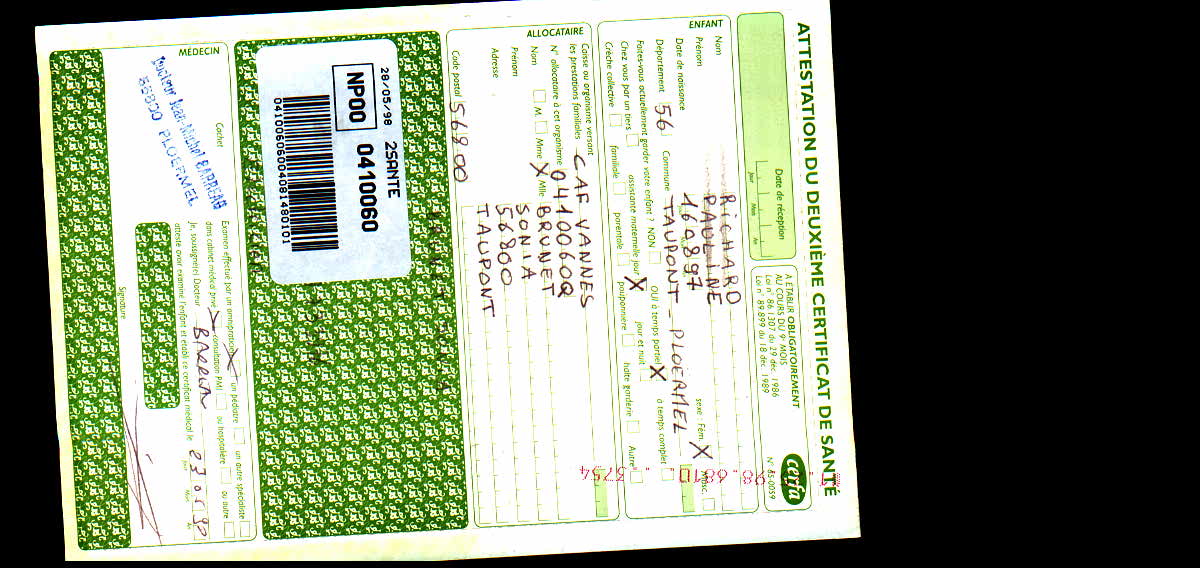 ATTESTATION DU DEUXIÈME CERTIFICAT DE SANTÉ
Date de réception
Jour Mois An
A ÉTABLIR OBLIGATOIREMENT
AU COURS DU 9e MOIS
Loi n° 86.1307 du 29 déc. 1986
Loi n° 89.899 du 18 déc. 1989
cerfa
N° 65-0059
ENFANT
Nom RICHARD
Prénom PAULINE
sexe : Fém. X Masc.
Date de naissance 160897
Département 56 Commune TAUPONT - PLOERMEL
Faites-vous actuellement garder votre enfant ? NON OUI à temps partiel X à temps complet
Chez vous par un tiers assistante maternelle jour X jour et nuit
Crèche collective familiale parentale pouponnière halte garderie Autre
ALLOCATAIRE
Caisse ou organisme versant
les prestations familiales CAF VANNES
N° allocataire à cet organisme 0410060Q
Nom M. Mme X Mlle BRUNET
Prénom SONIA
Adresse 56800
TAUPONT
Code postal 56800
28/05/98 2SANTE
NP00 0410060
04100606004081480101
MÉDECIN
Cachet
Docteur Jean-Michel BARREAU
56800 PLOERMEL
Examen effectué par un omnipraticien X un pédiatre un autre spécialiste
dans cabinet médical privé X consultation PMI ou hospitalière ou autre
Je, soussigné(e) Docteur BARREAU
atteste avoir examiné l'enfant et établi ce certificat médical le
Jour Mois An
Signature